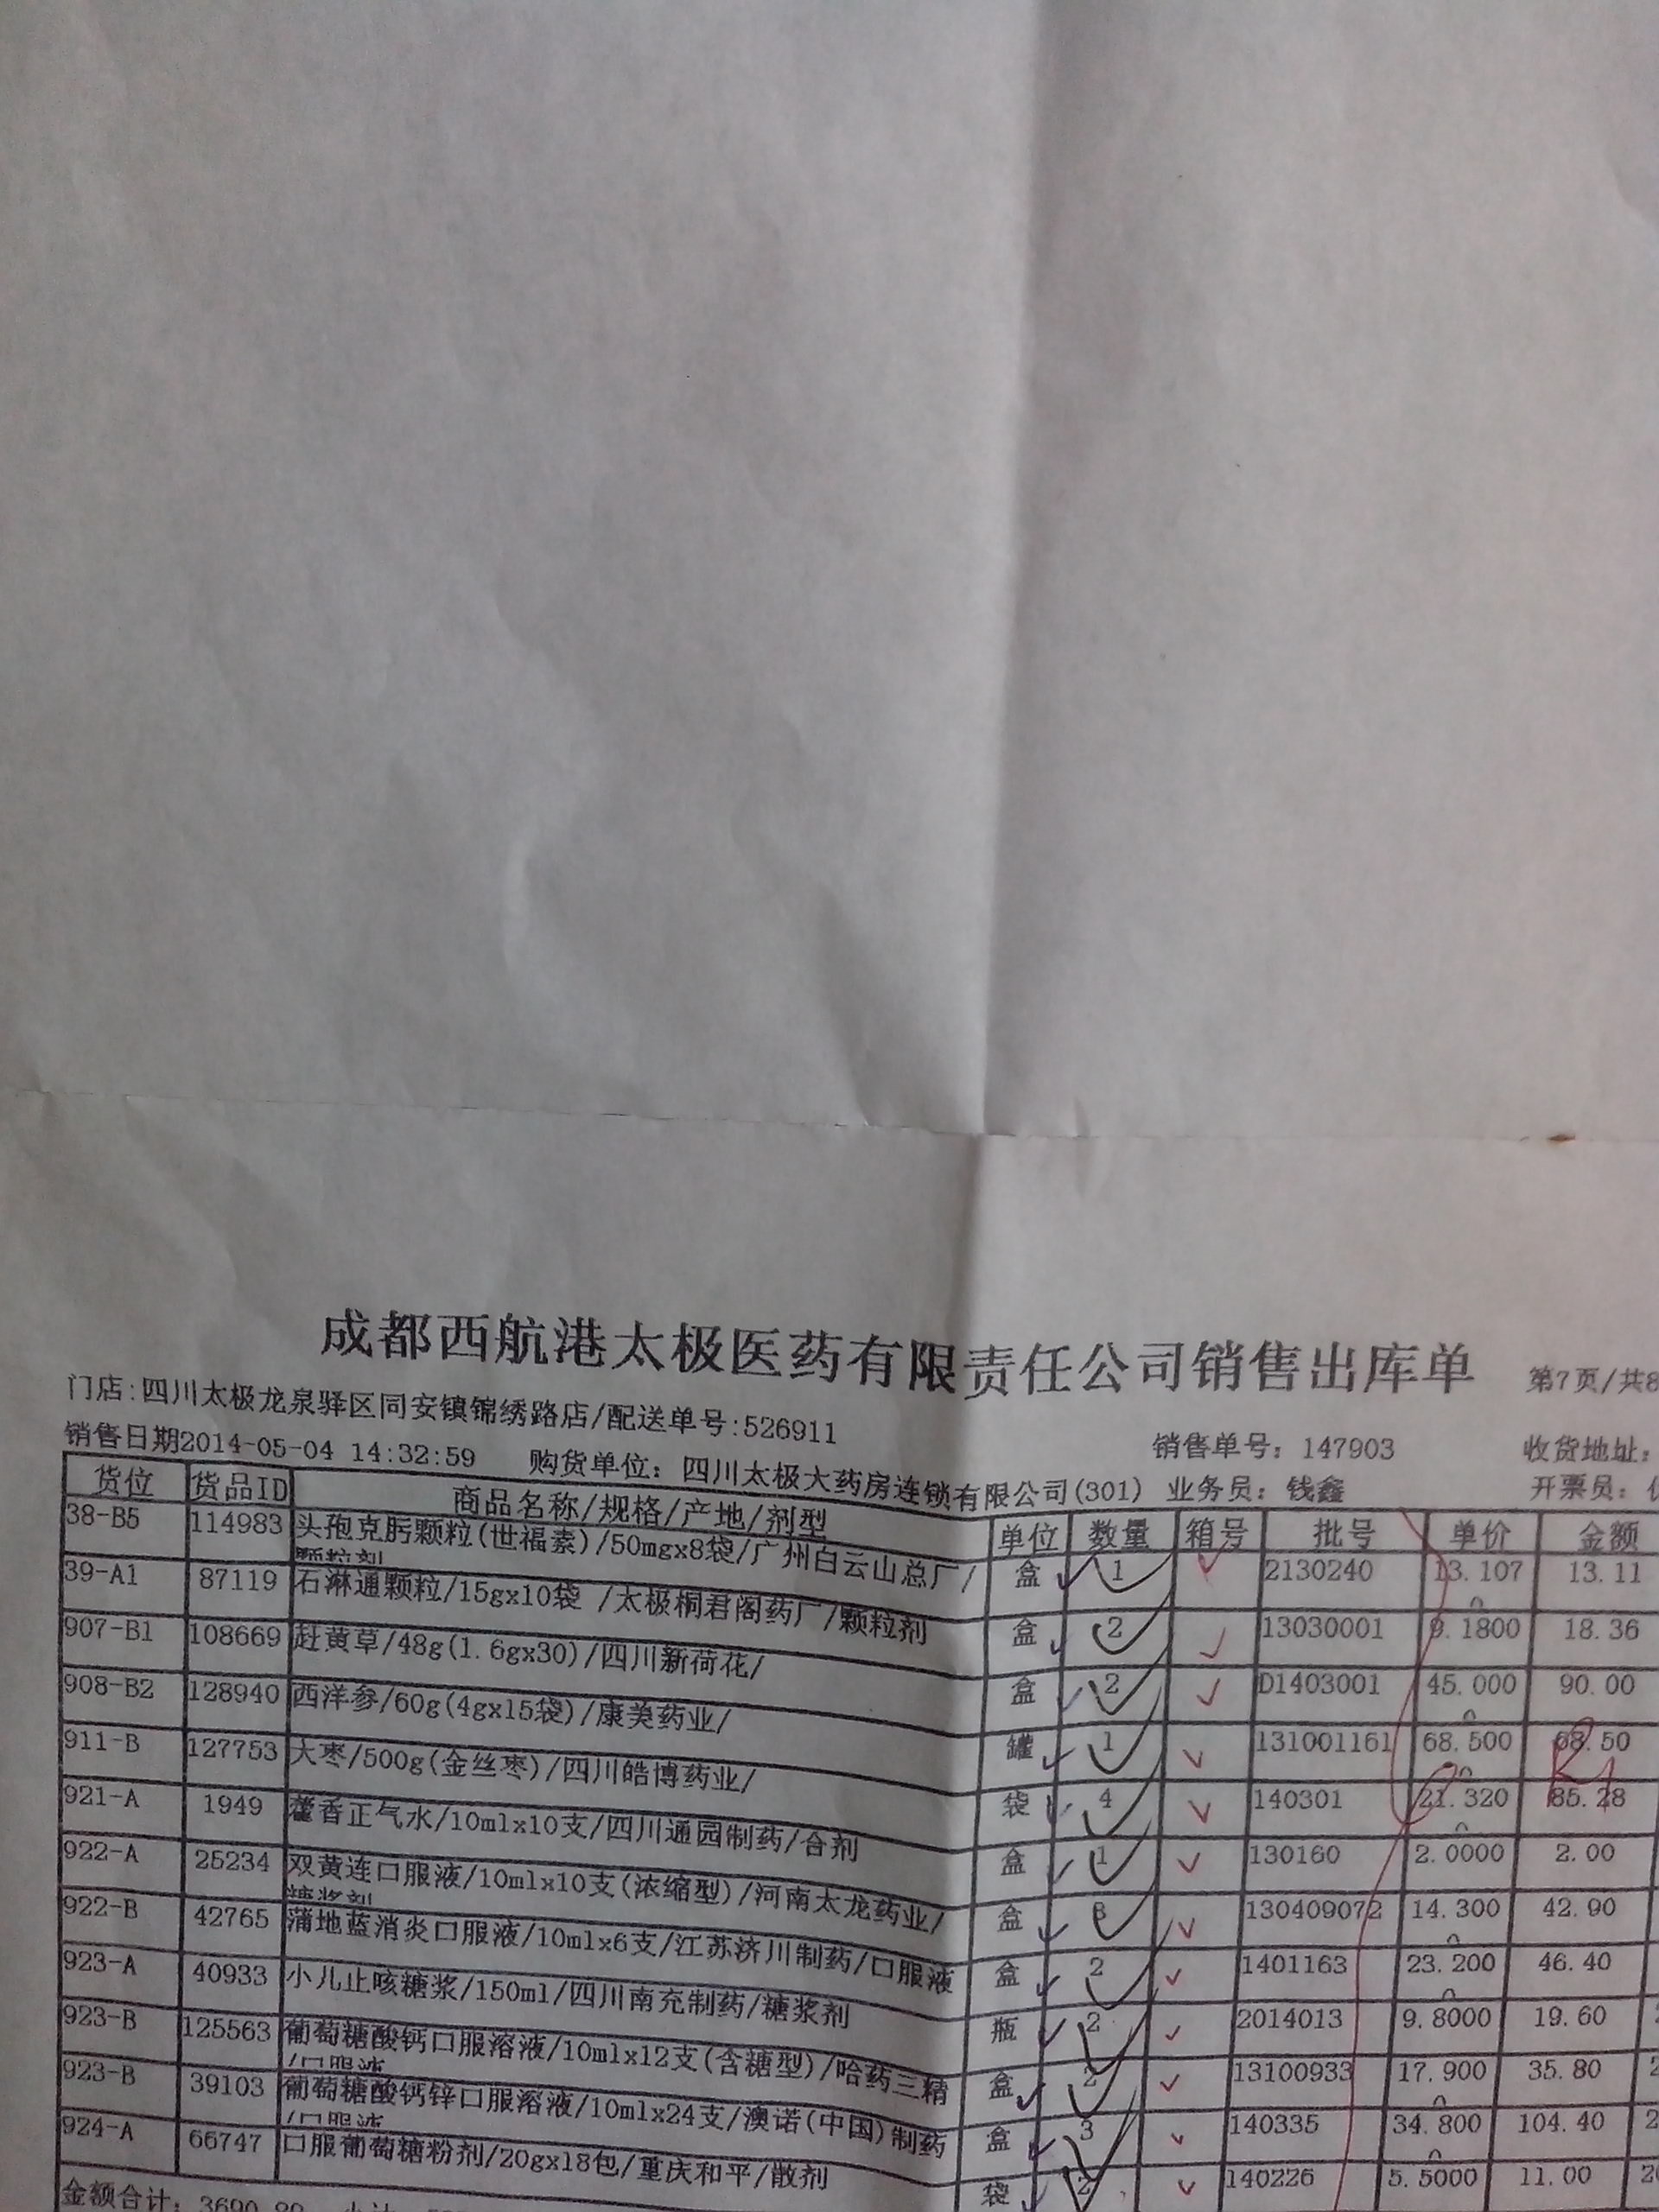 成都西航港太极医药有限责任公司销售出库单 第7页/共8
门店:四川太极龙泉驿区同安镇锦绣路店/配送单号:526911 销售单号: 147903 收货地址:
销售日期2014-05-04 14:32:59 购货单位: 四川太极大药房连锁有限公司(301) 业务员: 钱鑫 开票员:
货位 货品ID 商品名称/规格/产地/剂型 单位 数量 箱号 批号 单价 金额
38-B5 114983 头孢克肟颗粒(世福素)/50mgx8袋/广州白云山总厂/ 盒 1 2130240 13.107 13.11
颗粒剂 0
39-A1 87119 石淋通颗粒/15gx10袋 /太极桐君阁药厂/颗粒剂 盒 2 13030001 9.1800 18.36
907-B1 108669 赶黄草/48g(1.6gx30)/四川新荷花/ 盒 2 D1403001 45.000 90.00
0
908-B2 128940 西洋参/60g(4gx15袋)/康美药业/ 罐 1 131001161 68.500 68.50
0
911-B 127753 大枣/500g(金丝枣)/四川皓博药业/ 袋 4 140301 21.320 85.28
0
921-A 1949 藿香正气水/10mlx10支/四川通园制药/合剂 盒 1 130160 2.0000 2.00
922-A 25234 双黄连口服液/10mlx10支(浓缩型)/河南太龙药业/ 盒 3 130409072 14.300 42.90
糖浆剂 0
922-B 42765 蒲地蓝消炎口服液/10mlx6支/江苏济川制药/口服液 盒 2 1401163 23.200 46.40
0
923-A 40933 小儿止咳糖浆/150ml/四川南充制药/糖浆剂 瓶 2 2014013 9.8000 19.60
923-B 125563 葡萄糖酸钙口服溶液/10mlx12支(含糖型)/哈药三精 盒 2 13100933 17.900 35.80
/口服液 0
923-B 39103 葡萄糖酸钙锌口服溶液/10mlx24支/澳诺(中国)制药 盒 3 140335 34.800 104.40
/口服液 0
924-A 66747 口服葡萄糖粉剂/20gx18包/重庆和平/散剂 袋 2 140226 5.5000 11.00
金额合计: 3690.80